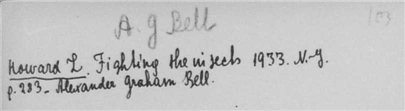 A. G Bell
103
Howard L. Fighting the insects 1933. N.-Y.
p. 283- Alexander Graham Bell.